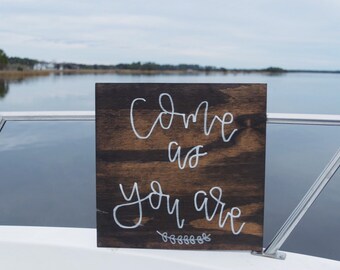 Come
as
you are